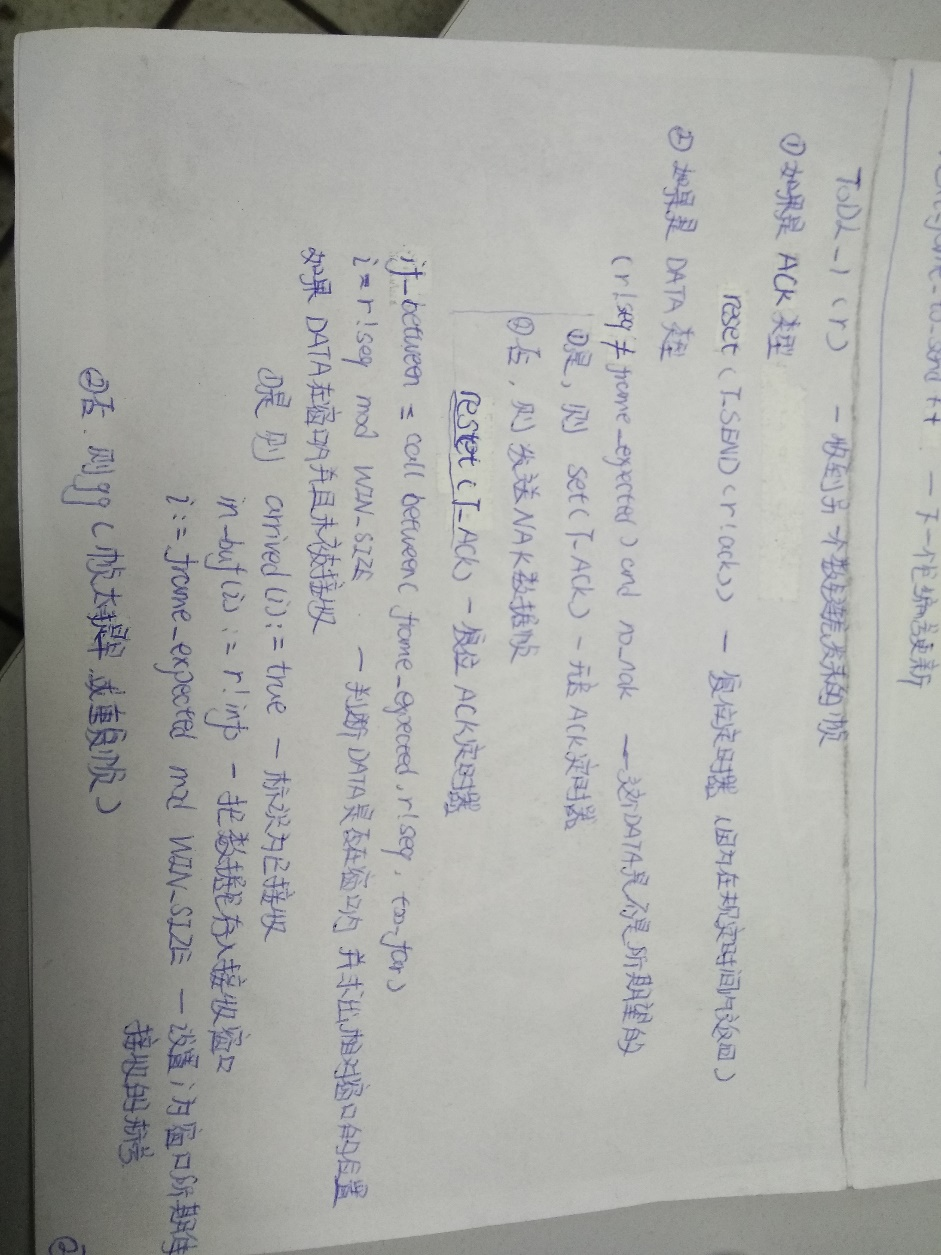 next_frame_to_send ++ — 下一个包编号更新
TODL_1 (r) — 收到另一个数链发来的帧
① 如果是 ACK 类型
reset (T_SEND (r!ack)) — 复位定时器 (因为在规定时间内返回)
② 如果是 DATA 类型
(r!seq ≠ frame_expected) and no_nak — 这个DATA是不是所期望的
①是, 则 set (T_ACK) — ACK定时器
②否, 则发送NAK数据帧
reset (T_ACK) — 复位 ACK定时器
if_between = call between ( frame_expected, r!seq, too_far)
i = r!seq mod WIN_SIZE — 判断DATA是否在窗口内 并求出相对窗口的位置
如果 DATA在窗口内并且未被接收
①是 则 arrived (i) := true — 标识为已接收
in_buf (i) := r!info — 把数据包存入接收窗口
i := frame_expected mod WIN_SIZE — 设置i为窗口所期待
接收的标号
②否, 则gg (帧太提早 或重复帧)